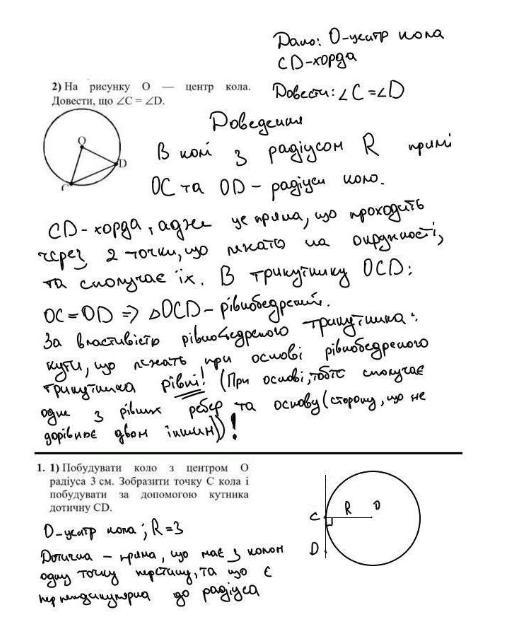 Дано: О-центр кола
CD-хорда
Довести: ∠C = ∠D
2) На рисунку О — центр кола.
Довести, що ∠C = ∠D.
O
D
C
Доведення
В колі з радіусом R прямі
OC та OD – радіуси кола.
CD-хорда, адже це пряма, що проходить
через 2 точки, що лежать на окружності,
та сполучає їх. В трикутнику OCD:
OC = OD => △OCD – рівнобедрений.
За властивістю рівнобедреного трикутника:
кути, що лежать при основі рівнобедреного
трикутника рівні! (При основі, тобто сполучає
одне з рівних ребер та основу (сторону, що не
дорівнює двом іншим))!
1. 1) Побудувати коло з центром О
радіуса 3 см. Зобразити точку С кола і
побудувати за допомогою кутника
дотичну CD.
О-центр кола; R=3
Дотична – пряма, що має з колом
одну точку перетину, та що є
перпендикулярна до радіуса
C R O
D